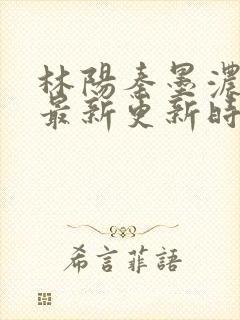 林陽秦墨濃
最新更新時
希言菲語